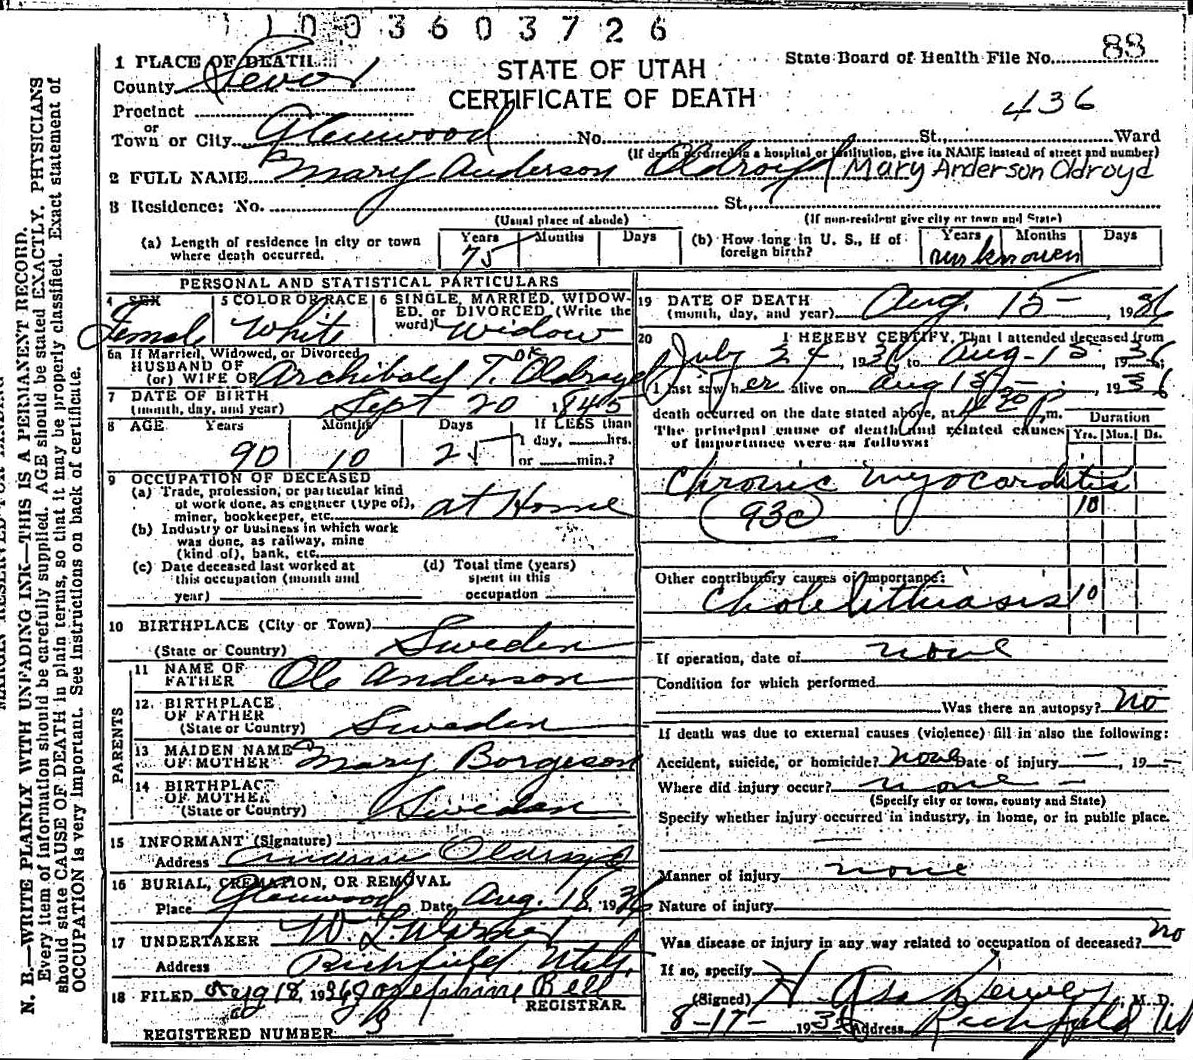 1003603726
State Board of Health File No. 88
1 PLACE OF DEATH
STATE OF UTAH
County Sevier
CERTIFICATE OF DEATH
436
Precinct
or
Town or City Glenwood No. St., Ward
(If death occurred in a hospital or institution, give its NAME instead of street and number)
2 FULL NAME Mary Anderson Oldroyd (Mary Anderson Oldroyd
3 Residence: No. St.,
(Usual place of abode) (If non-resident give city or town and State)
(a) Length of residence in city or town where death occurred. Years 75 Months Days
(b) How long in U. S., if of foreign birth? Years unknown Months Days
PERSONAL AND STATISTICAL PARTICULARS
4 SEX Female
5 COLOR OR RACE White
6 SINGLE, MARRIED, WIDOWED, OR DIVORCED (Write the word) Widow
6a If Married, Widowed, or Divorced
HUSBAND OF
(or) WIFE OF Archibald T. Oldroyd
7 DATE OF BIRTH
(month, day, and year) Sept 20 1845
8 AGE Years 90 Months 10 Days 25 If LESS than 1 day, hrs. or min.?
9 OCCUPATION OF DECEASED
(a) Trade, profession, or particular kind
of work done, as engineer (type of),
miner, bookkeeper, etc. at Home
(b) Industry or business in which work
was done, as railway, mine
(kind of), bank, etc.
(c) Date deceased last worked at
this occupation (month and
year)
(d) Total time (years)
spent in this
occupation
10 BIRTHPLACE (City or Town)
(State or Country) Sweden
PARENTS
11 NAME OF FATHER Ole Anderson
12 BIRTHPLACE OF FATHER
(State or Country) Sweden
13 MAIDEN NAME OF MOTHER Mary Borgeson
14 BIRTHPLACE OF MOTHER
(State or Country) Sweden
15 INFORMANT (Signature) Oldroyd
Address
16 BURIAL, CREMATION, OR REMOVAL
Place Glenwood Date Aug. 18, 1936
17 UNDERTAKER
Address Richfield Utah
18 FILED Aug 18, 1936 Josephine Bell
REGISTRAR.
REGISTERED NUMBER 3
19 DATE OF DEATH
(month, day, and year) Aug. 15 - , 1936
20 I HEREBY CERTIFY, That I attended deceased from
July 24, 1936 to Aug-15, 1936
I last saw her alive on Aug 15 - 1936
death occurred on the date stated above, at m.
Duration
The principal cause of death and related causes
of importance were as follows:
Yrs. Mos. Ds.
Chronic myocarditis
93c 10
Other contributory causes of importance:
Cholelithiasis 10
If operation, date of none
Condition for which performed
Was there an autopsy? no
If death was due to external causes (violence) fill in also the following:
Accident, suicide, or homicide? none Date of injury — , 19 —
Where did injury occur? none —
(Specify city or town, county and State)
Specify whether injury occurred in industry, in home, or in public place.
—
Manner of injury none
Nature of injury
Was disease or injury in any way related to occupation of deceased? no
If so, specify
(Signed) H. Asa Dewey, M. D.
8-17- 1936 Address Richfield Ut
N. B.—WRITE PLAINLY WITH UNFADING INK—THIS IS A PERMANENT RECORD.
Every item of information should be carefully supplied. AGE should be stated EXACTLY. PHYSICIANS
should state CAUSE OF DEATH in plain terms, so that it may be properly classified. Exact statement of
OCCUPATION is very important. See instructions on back of certificate.